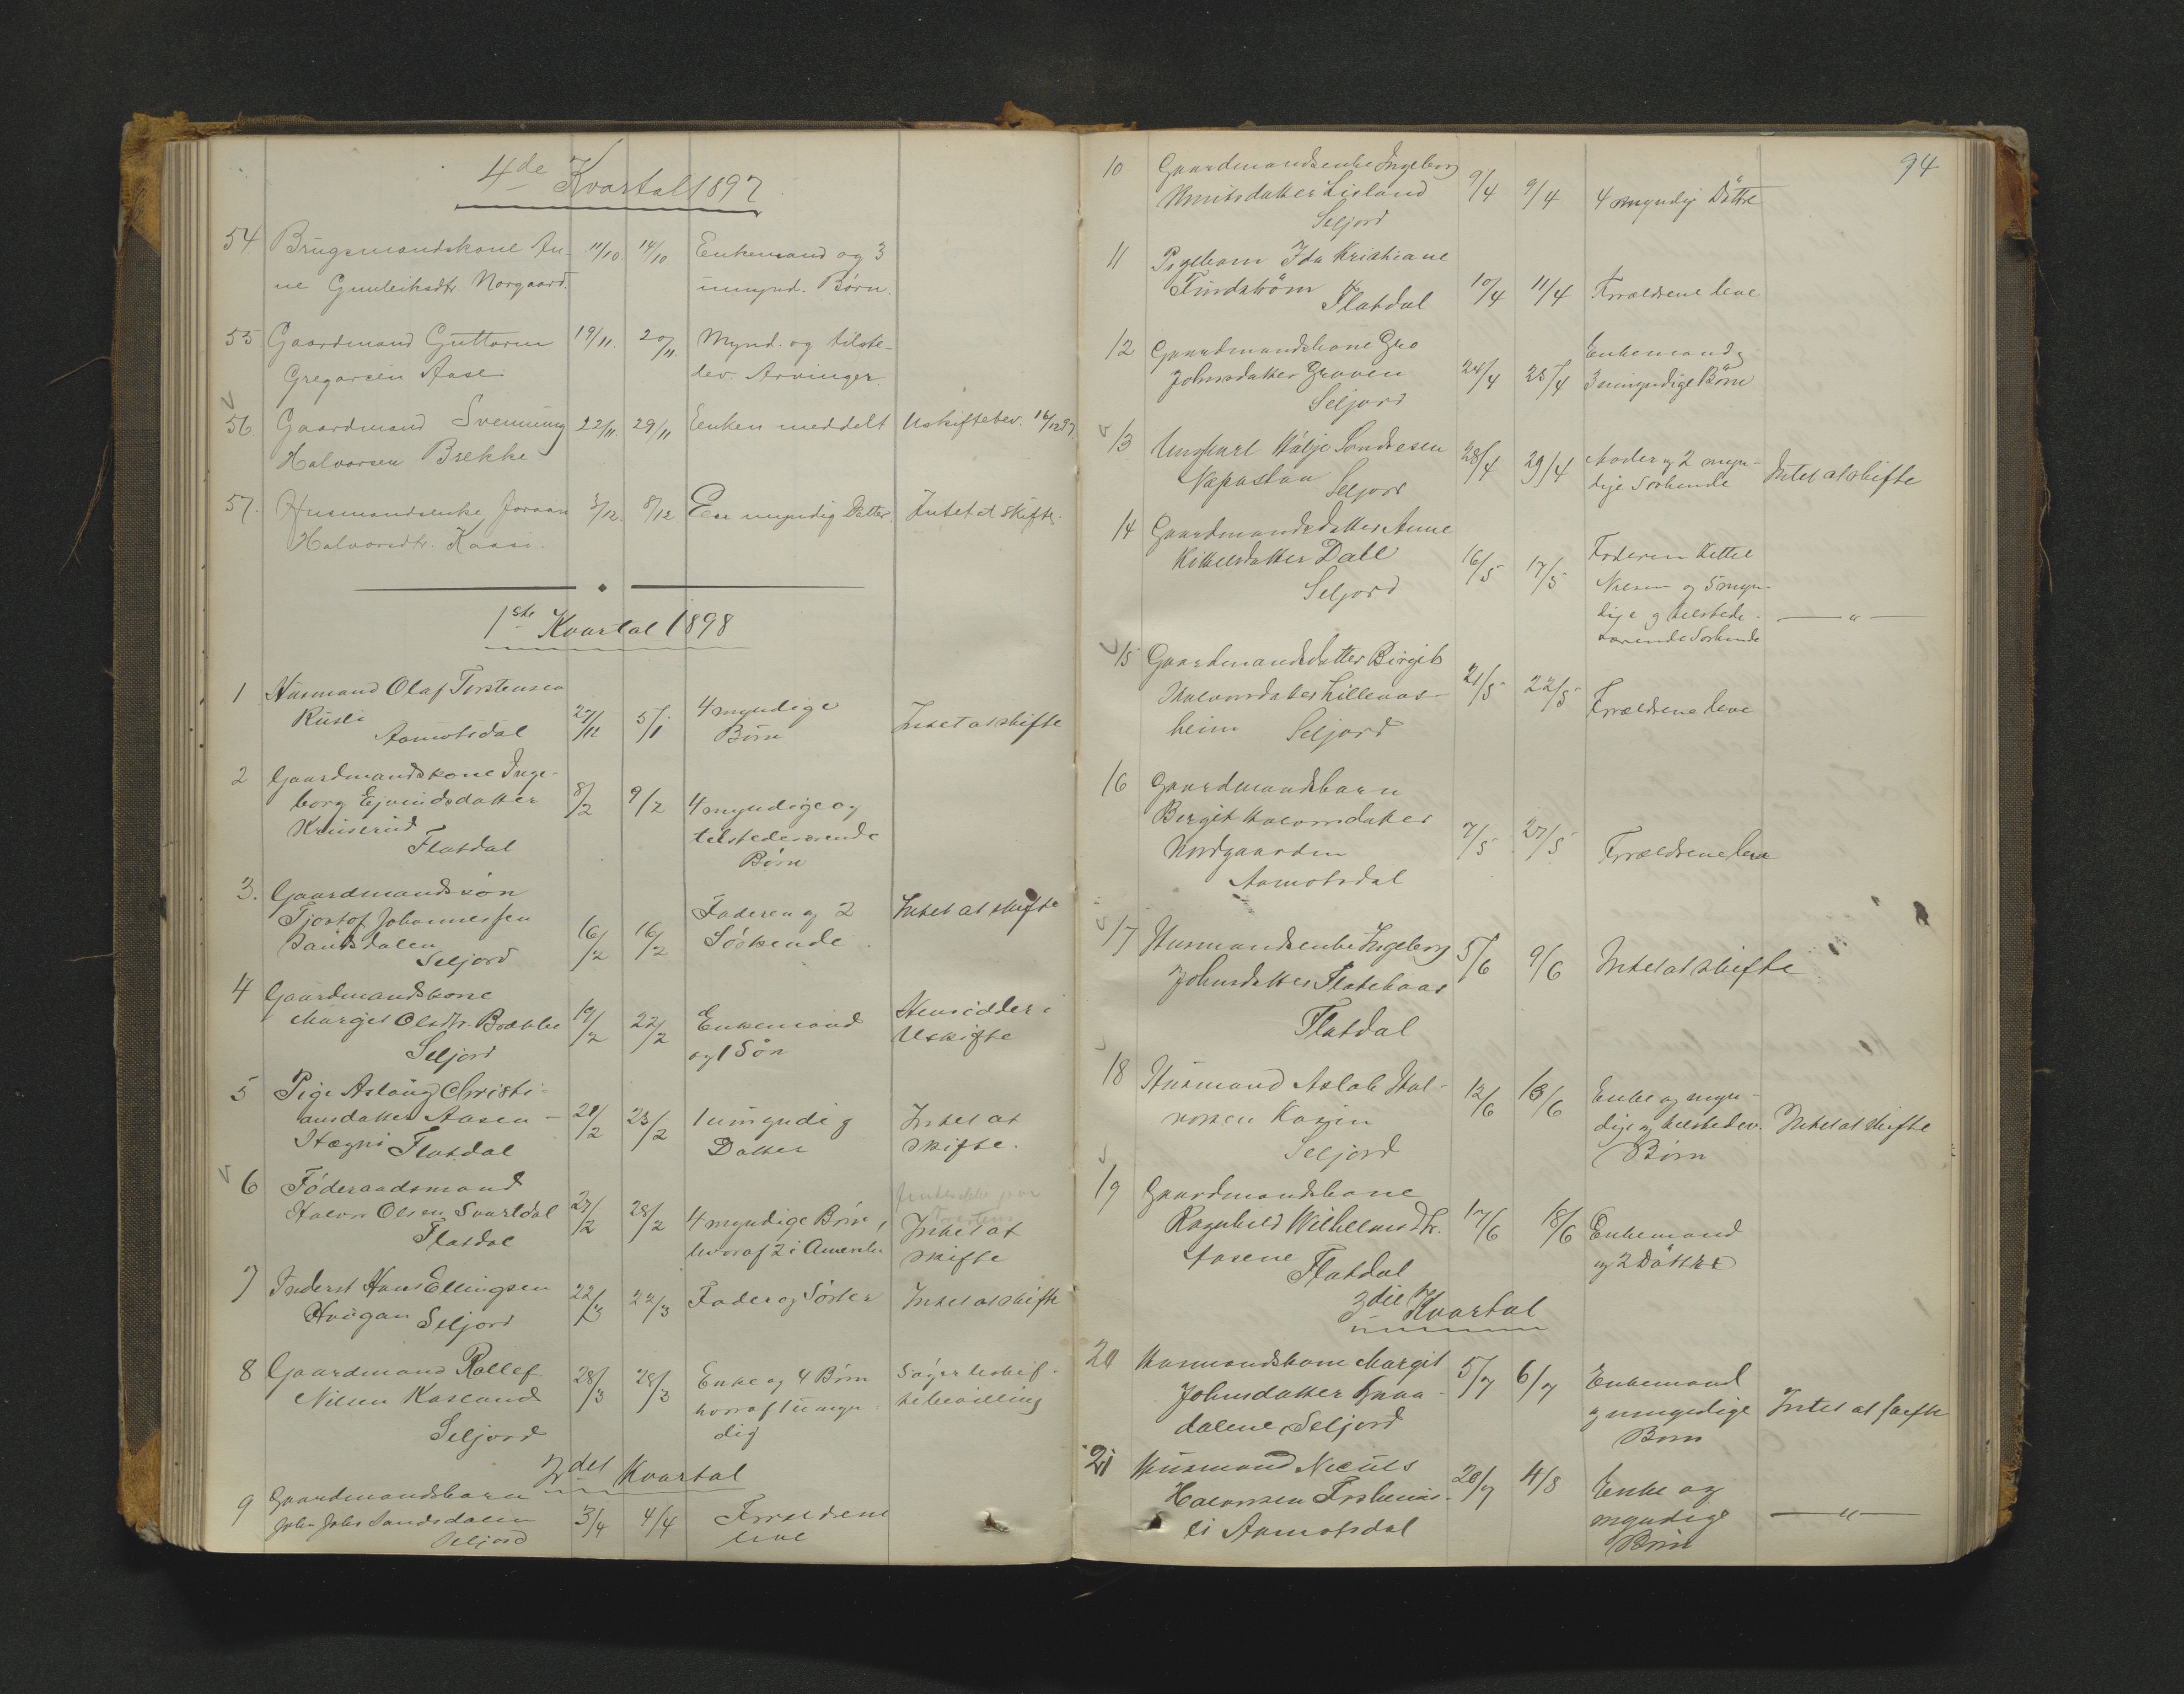 4de Kvartal 1897
54 Brugsmandskone An- 11/10 14/10 Enkemand og 3
ne Gunleiksdtr. Norgaard. umynd. Børn.
55 Gaardmand Guttorm 19/11. 20/11. Mynd. og tilste-
Gregarsen Aase dev. Arvinger.
56. Gaardmand Svenning 22/11. 29/11 Enken meddelt Uskiftebev. 16/12 97
Halvorsen Brekke.
57. Husmandsenke Joraan 3/12. 8/12 Een myndig Datter. Intet at skifte.
Halvorsdtr. Kaasi.
1ste Kvartal 1898
1 Husmand Olaf Torstensen
Rusli 27/12 5/1 4 myndige Intet at skifte
Aamotsdal Børn
2 Gaardmandskone Inge-
borg Ejvindsdatter 8/2 9/2 4 myndige og
tilstedeværende
Flatdal Børn
3. Gaardmandssøn
Tjostof Johannessen 16/2 16/2 Faderen og 2 Intet at skifte
Sandsdalen Søskende.
Seljord
4 Gaardmandskone
Margit Olsdtr. Brække 19/2 22/2 Enkemand Hensidder i
Seljord og 1 Søn Uskifte
5 Pige Aslaug Christi-
ansdatter Aasen- 20/2 23/2 1 umyndig Intet at
Hægni Flatdal Datter skifte.
6 Føderaadsmand
Halvor Olsen Svartdal 27/2 28/2 4 myndige Børn, Intet at
Flatdal hvoraf 2 i Amerika skifte
7 Inderst Hans Ellingsen 22/3 22/3 Fader og Søster Intet at skifte
Seljord
8 Gaardmand Rollef
Nilsen Kasland 28/3 28/3 Enke og 4 Børn Søger Uskif-
hvoraf 1 umyn- tebevilling
Seljord dig
2det Kvartal
9 Gaardmandsbarn
John Johs Sandsdalen 3/4 4/4 Forældrene
Seljord leve
94
10 Gaardmandsenke Ingeborg
Knutsdatter Lisland 9/4 9/4 4 myndig Døttre
Seljord
11 Pigebarn Ida Kristiane
Findstrøm 10/4 11/4 Forældrene leve
Flatdal
12 Gaardmandskone Gro Enkemand og
Johnsdatter Graven 24/4 25/4 3 umyndige Børn
Seljord
13 Ungkarl Hølje Sondresen 28/4 29/4 Moder og 2 myn- Intet at skifte
Seljord dige Søskende
14 Gaardmandsdatter Anne
Kittelsdatter Dale 16/5 17/5 Faderen Kittel
Seljord Nilsen og 5 myn-
dige og tilstede- — " —
værende Søskende
15 Gaardmandsdatter Birgit
Halvorsdatter Lillevas- 21/5 22/5 Forældrene leve
heim Seljord
16 Gaardmandsbarn
Birgit Halvorsdatter
Nordgaarden 7/5 27/5 Forældrene leve
Aamotsdal
17 Husmandsenke Ingeborg 5/6 9/6 Intet at skifte
Johnsdatter Flatekaas
Flatdal
18 Husmand Aslak Hal- 12/6 13/6 Enke og myn-
vorsen Kaasin dige og tilstedev. Intet at skifte
Seljord Børn
19 Gaardmandskone
Ragnhild Wilhelmsdtr. 17/6 18/6 Enkemand
Aasene og 2 Døttre
Flatdal
3die Kvartal
20 Husmandskone Margit 5/7 6/7 Enkemand
Johnsdatter Graa- og myndige Intet at skifte
dalene Seljord Børn
21 Husmand Niculs 20/7 4/8 Enke og
Halvorsen Forberás- myndige — " —
li Aamotsdal Børn